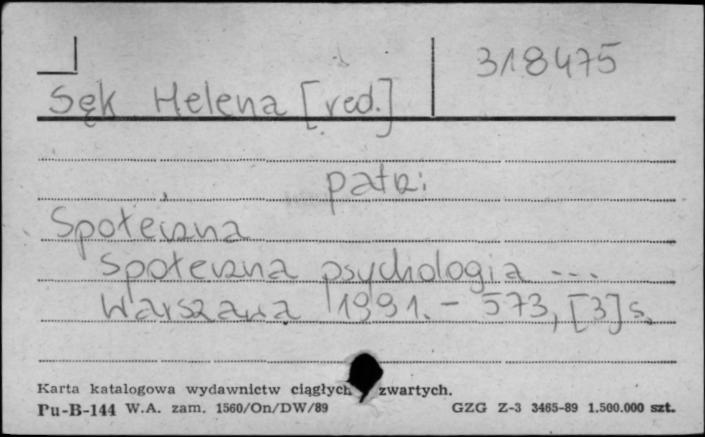 318475
Sęk Helena [red.]
patrz:
Społeczna
Społeczna psychologia ...
Warszawa 1991. - 573, [3] s.
Karta katalogowa wydawnictw ciągłych zwartych.
Pu-B-144 W.A. zam. 1560/On/DW/89 GZG Z-3 3465-89 1.500.000 szt.